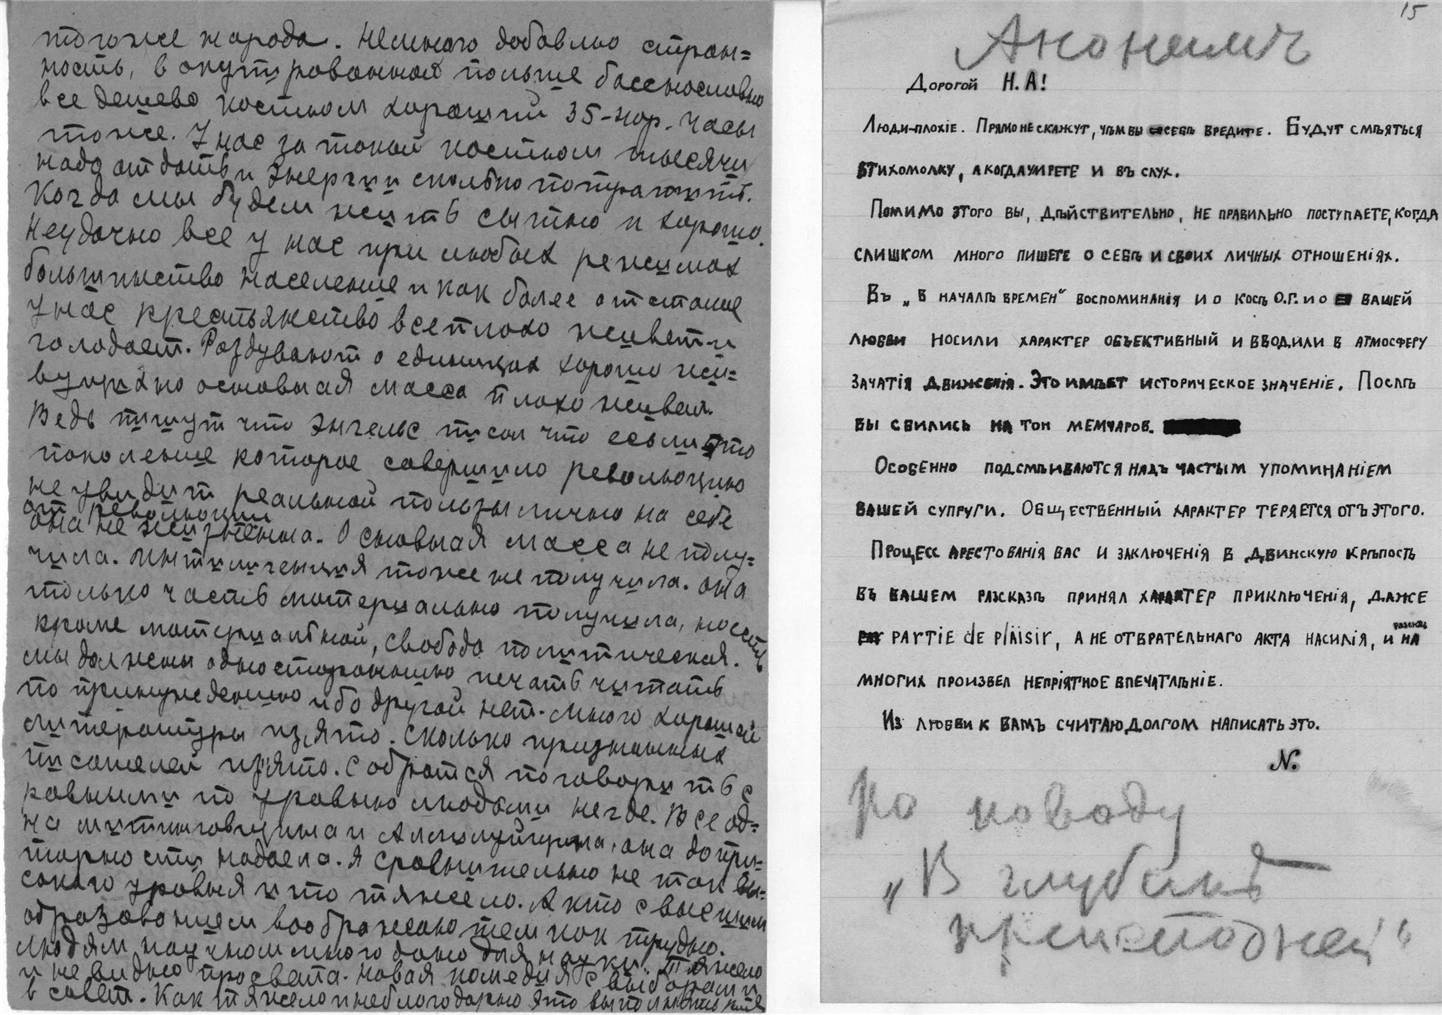 тогоже народа. Немного добавлю стран=
ность, в окупированной польше баснословно
все дешево костюм хороший 35-мар. часы
тоже. У нас за такой костюм тысячи
надо отдать и энергии сколько потратит.
Когда мы будем жить сытно и хорошо.
Неудачно все у нас при любых режимах
большинство население и как более отсталое
у нас крестьянство все плохо живет и
голодает. Раздувают о единицах хорошо жи=
вущих но основная масса плохо живет.
Ведь пишут что Энгельс писал что если это
поколение которое совершило революцию
не увидит реальной пользы лично на себе
от революции
она не жизненна. Основная масса не полу=
чила. Интилигенция тоже не получила. она
только часть материально получила, но есть
кроме материальной, свобода политическая.
мы должны одностороннию печать читать
по принуждению ибо другой нет. много хорошей
литературы изято. сколько признанных
писателей изято. собратся поговорить с
равными по уровню людьми негде. Все од=
на митинговщина и Аллилуйщина, она до при=
торности надоела. Я сравнительно не так вы=
сокого уровня и то тяжело. А кто с высшим
образованием воображаю тем как трудно.
людям научном много дано для науки. Тяжело
и не видно просвета. новая комедия с выборами
в совет. Как тяжело и неблагодарно это выполнять
15
Анонимъ
Дорогой Н.А!
Люди-плохіе. Прямо не скажут, чѣм вы себѣ вредите. Будут смѣяться
втихомолку, а когда умрете и въ слух.
Помимо этого вы, дѣйствительно, не правильно поступаете, когда
слишком много пишете о себѣ и своих личных отношеніях.
Въ „В началѣ времен" воспоминанія и о Кость О.Г. и о вашей
любви носили характер объективный и вводили в атмосферу
зачатія движенія. Это имѣет историческое значеніе. Послѣ
вы свились на тон мемуаров.
Особенно подсмѣиваются надъ частым упоминаніем
вашей супруги. Общественный характер теряется отъ этого.
Процесс арестованія вас и заключенія в Двинскую крѣпость
въ вашем разсказѣ принял характер приключенія, даже
partie de plaisir, а не отвратительнаго акта насилія, и на
многих произвел непріятное впечатлѣніе.
Из любви к вамъ считаю долгом написать это.
N.
По поводу
„В глубинѣ
преисподней"